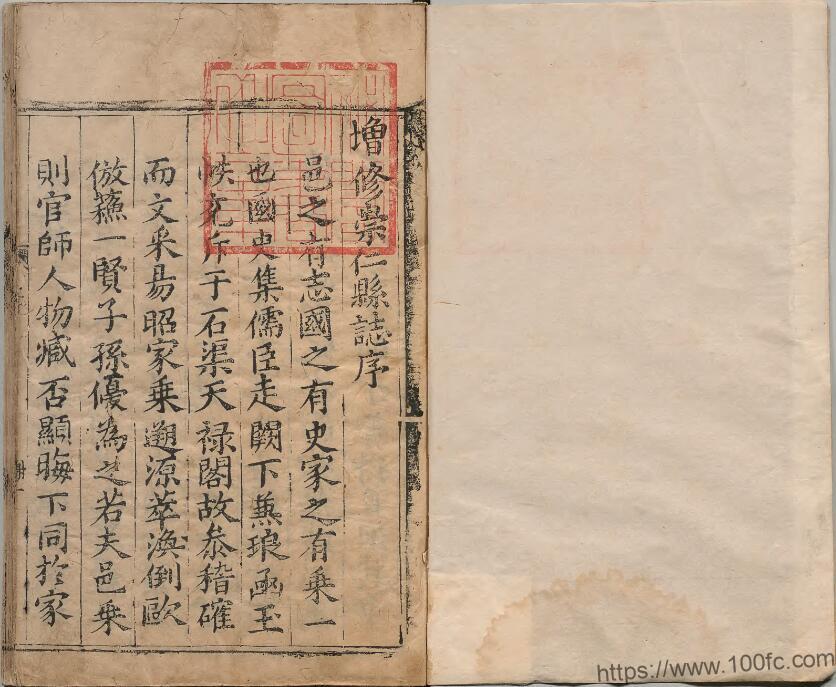 增修崇仁縣誌序
邑之有志國之有史家之有乗一
也國史集儒臣走闕下兼琅函玉
帙充斥于石渠天禄閣故叅稽確
而文采易昭家乗遡源萃渙倒歐
倣蘓一賢子孫優為之若夫邑乗
則官師人物臧否顯晦下同於家
https://www.100fc.com